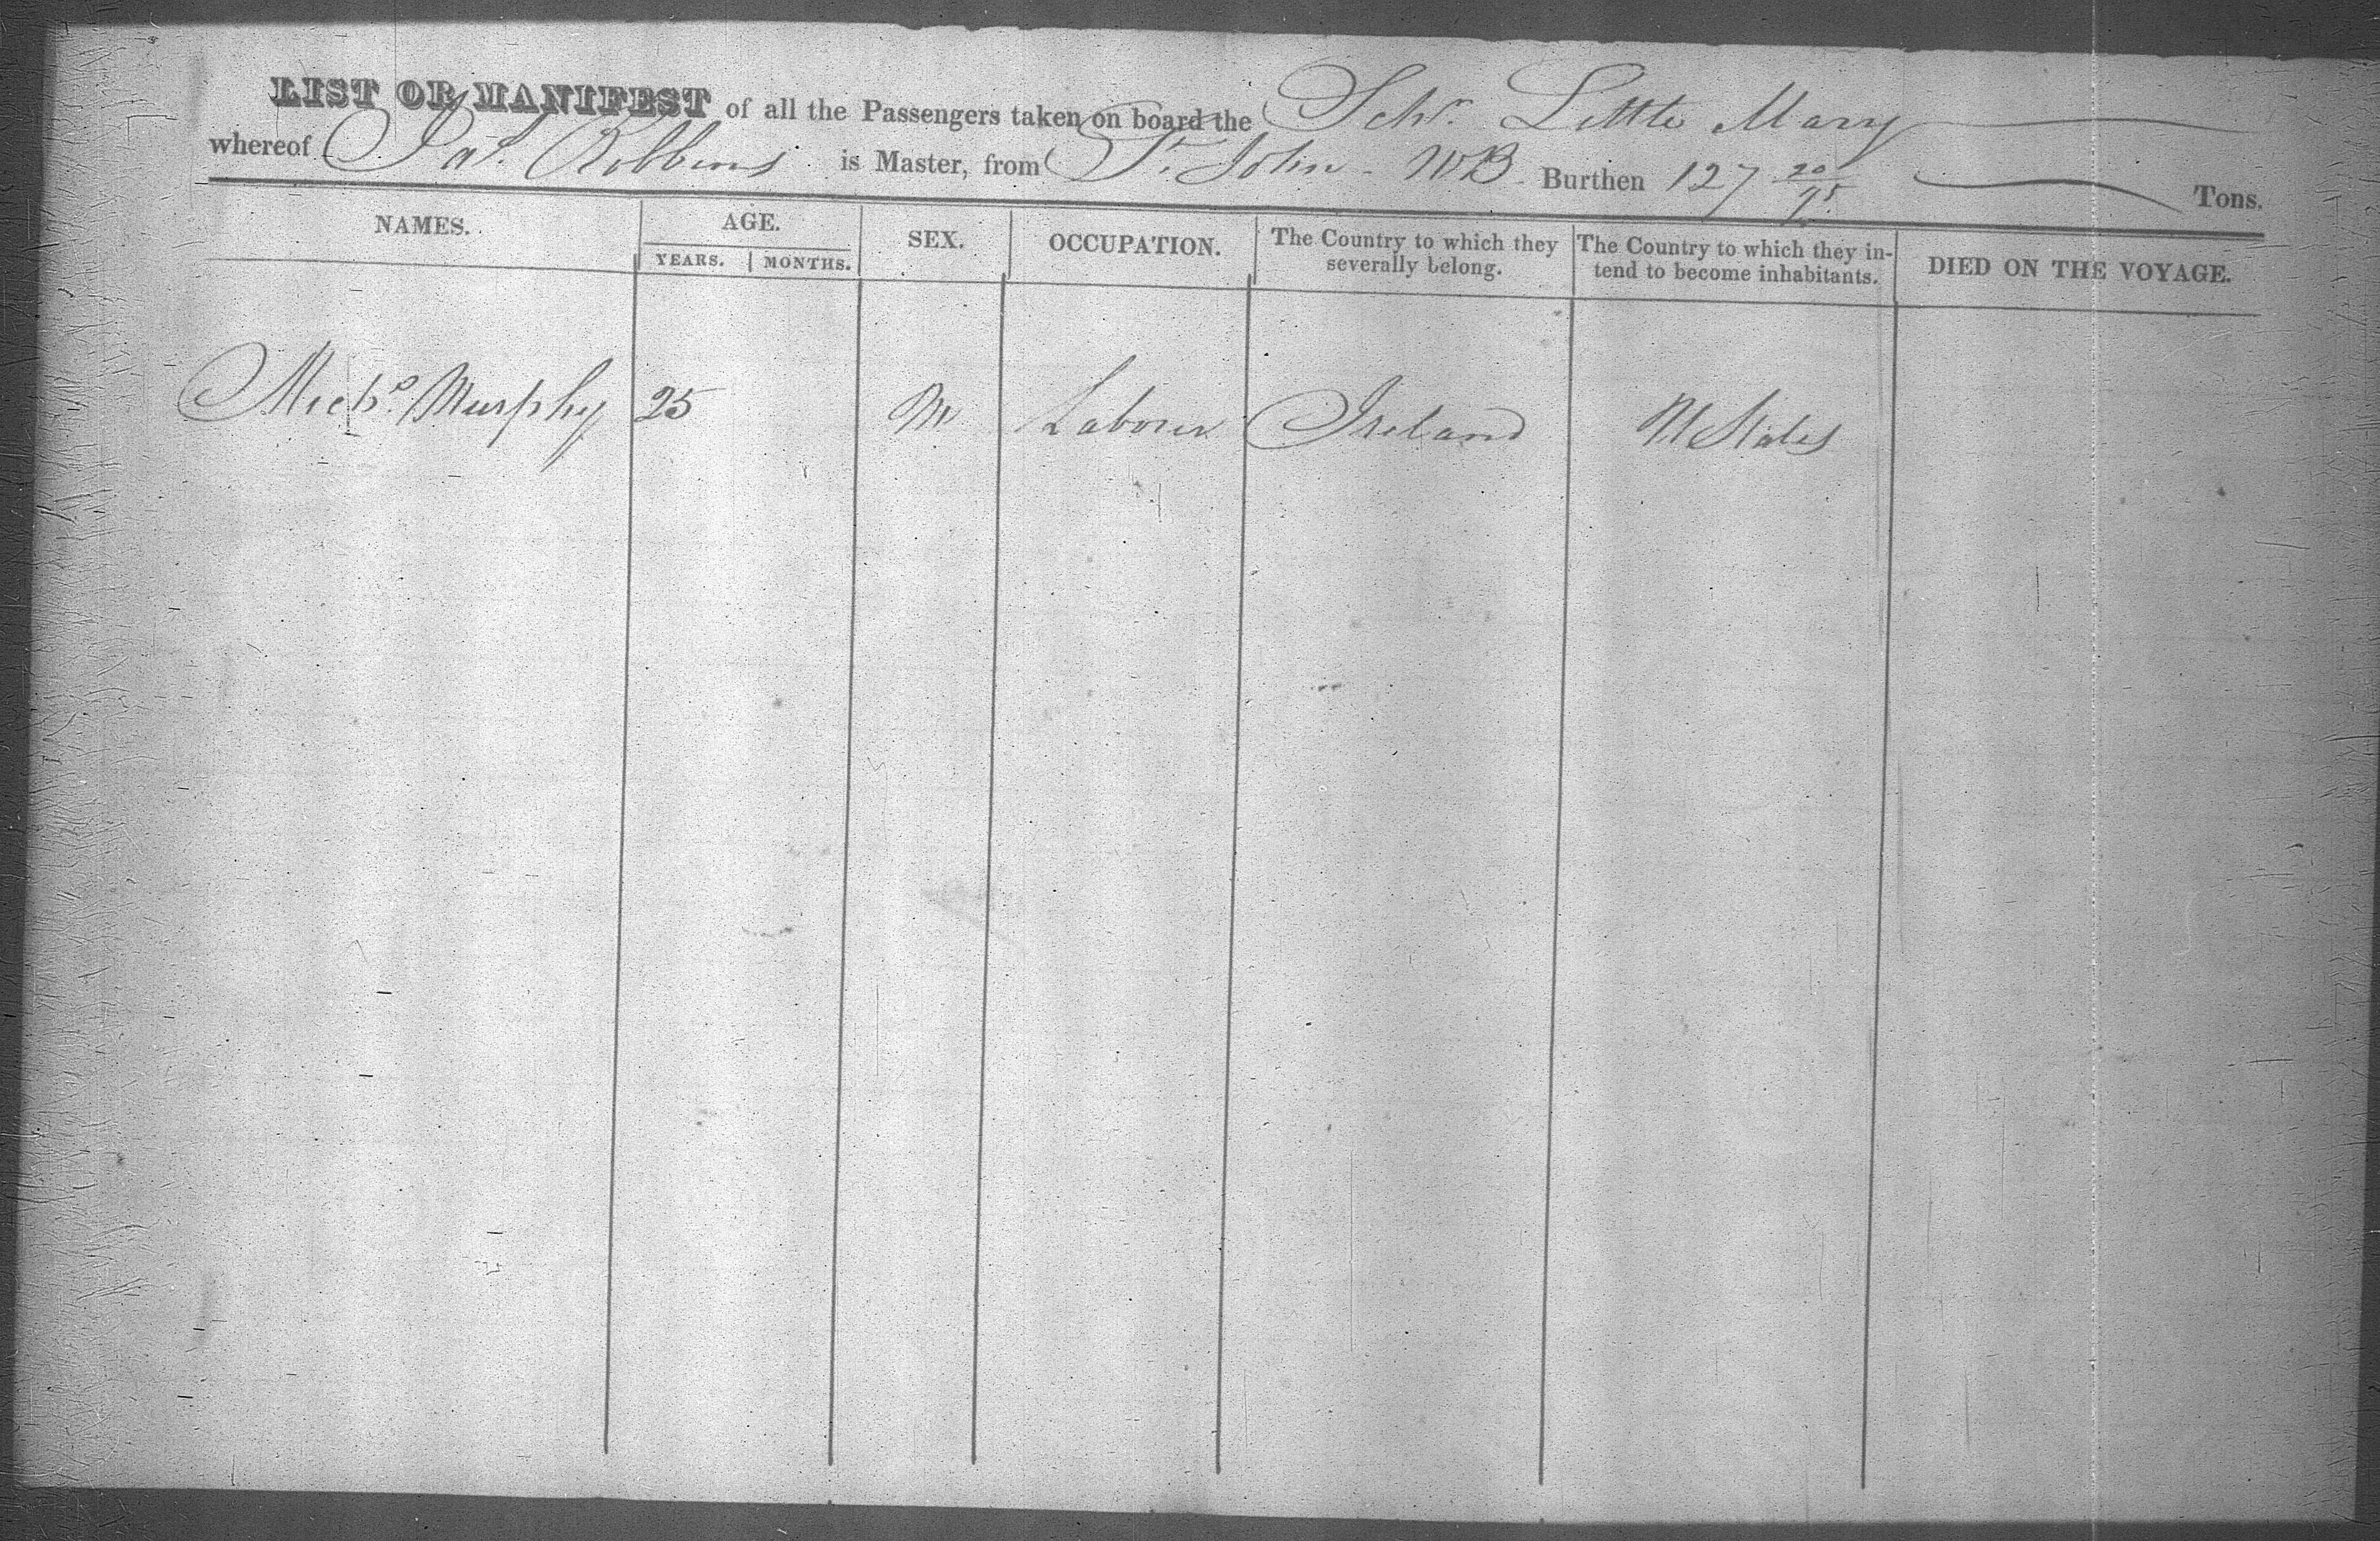 LIST OR MANIFEST of all the Passengers taken on board the Schr. Little Mary
whereof Jas. Robbins is Master, from St. John - NB. Burthen 127 20/95 Tons.
NAMES. AGE. SEX. OCCUPATION. The Country to which they severally belong. The Country to which they intend to become inhabitants. DIED ON THE VOYAGE.
YEARS. MONTHS.
Michl. Murphy 25 M Laborer Ireland U States